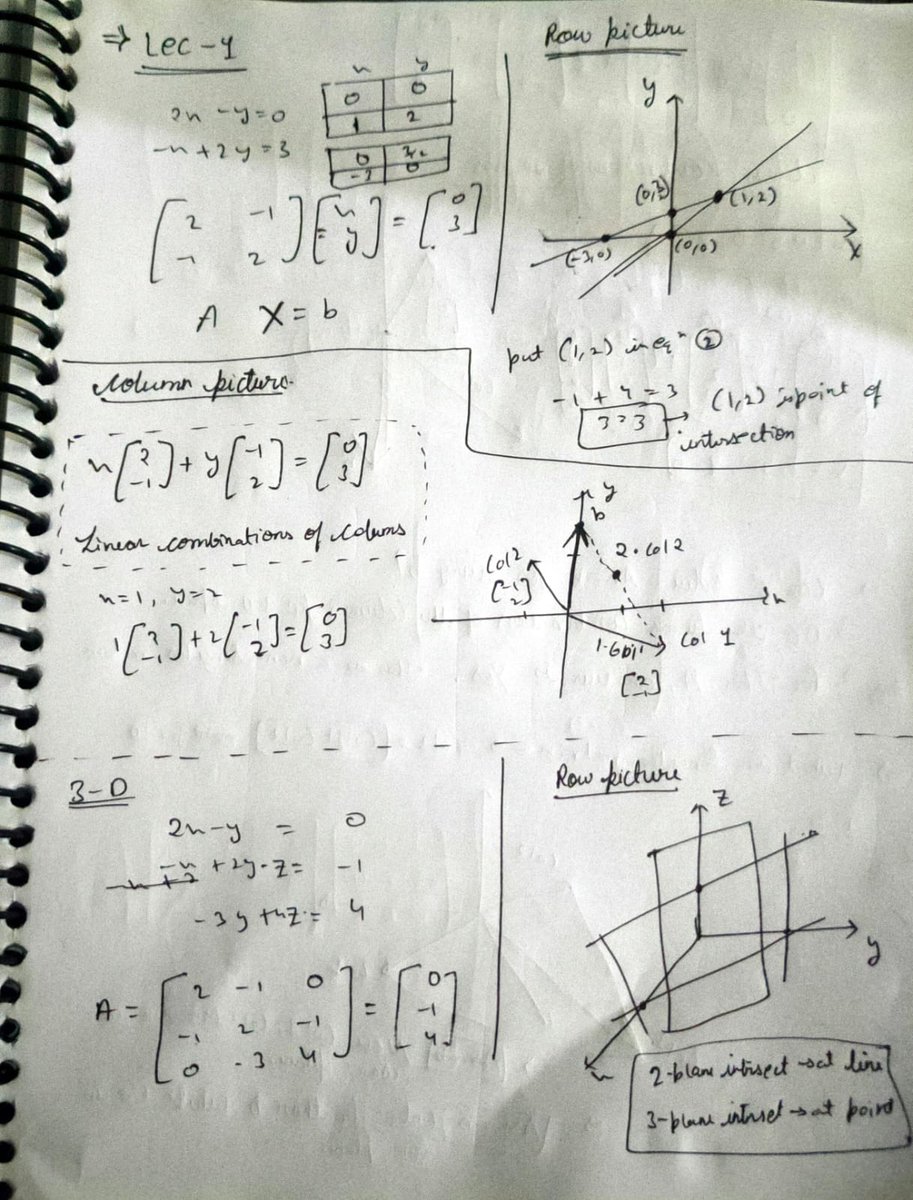 ⇒ Lec-1
2x - y = 0
-x + 2y = 3
x y
0 0
1 2
0 3/2
-3 0
[2 -1; -1 2] [x; y] = [0; 3]
A X = b
Row picture
y
(0, 3/2)
(1,2)
(-3,0)
(0,0)
X
put (1,2) in eqⁿ ②
-1 + 4 = 3
3 = 3 → (1,2) is point of
intersection
Column picture
x[2; -1] + y[-1; 2] = [0; 3]
Linear combinations of colums
x=1, y=2
1[2; -1] + 2[-1; 2] = [0; 3]
y
b
2·col 2
col 2
[-1; 2]
x
1·col 1
col 1
[2; -1]
3-D
2x - y = 0
-x + 2y - z = -1
-3y + 4z = 4
A = [2 -1 0; -1 2 -1; 0 -3 4] = [0; -1; 4]
Row picture
z
y
x
2-plane intersect → at line
3-plane intrset → at point